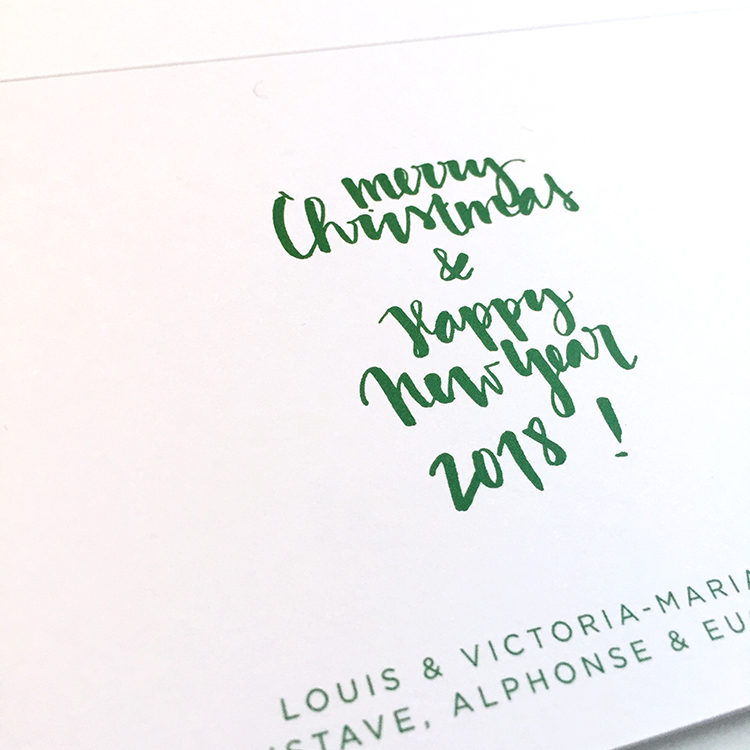 merry
Christmas
&
Happy
New Year
2018 !
LOUIS & VICTORIA-MARIA
STAVE, ALPHONSE & EU